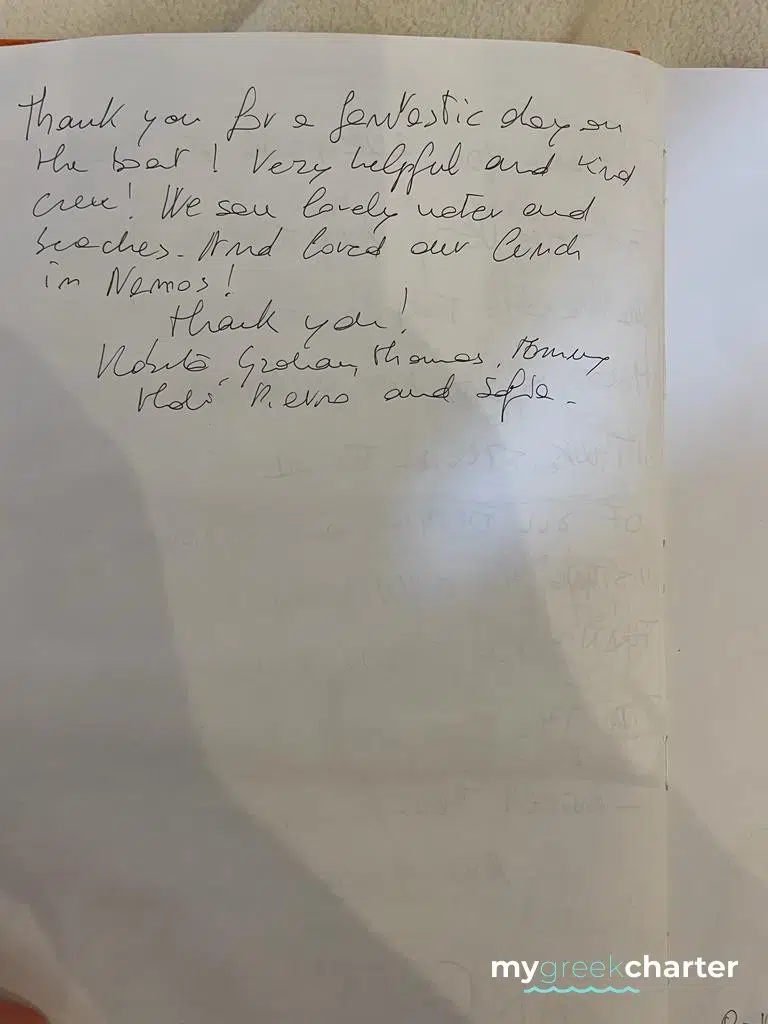 Thank you for a fantastic day on
the boat! Very helpful and kind
crew! We saw lovely water and
beaches. And loved our lunch
in Nemos!
Thank you!
Graham, Thomas, Tommy
and Sofia.
mygreekcharter